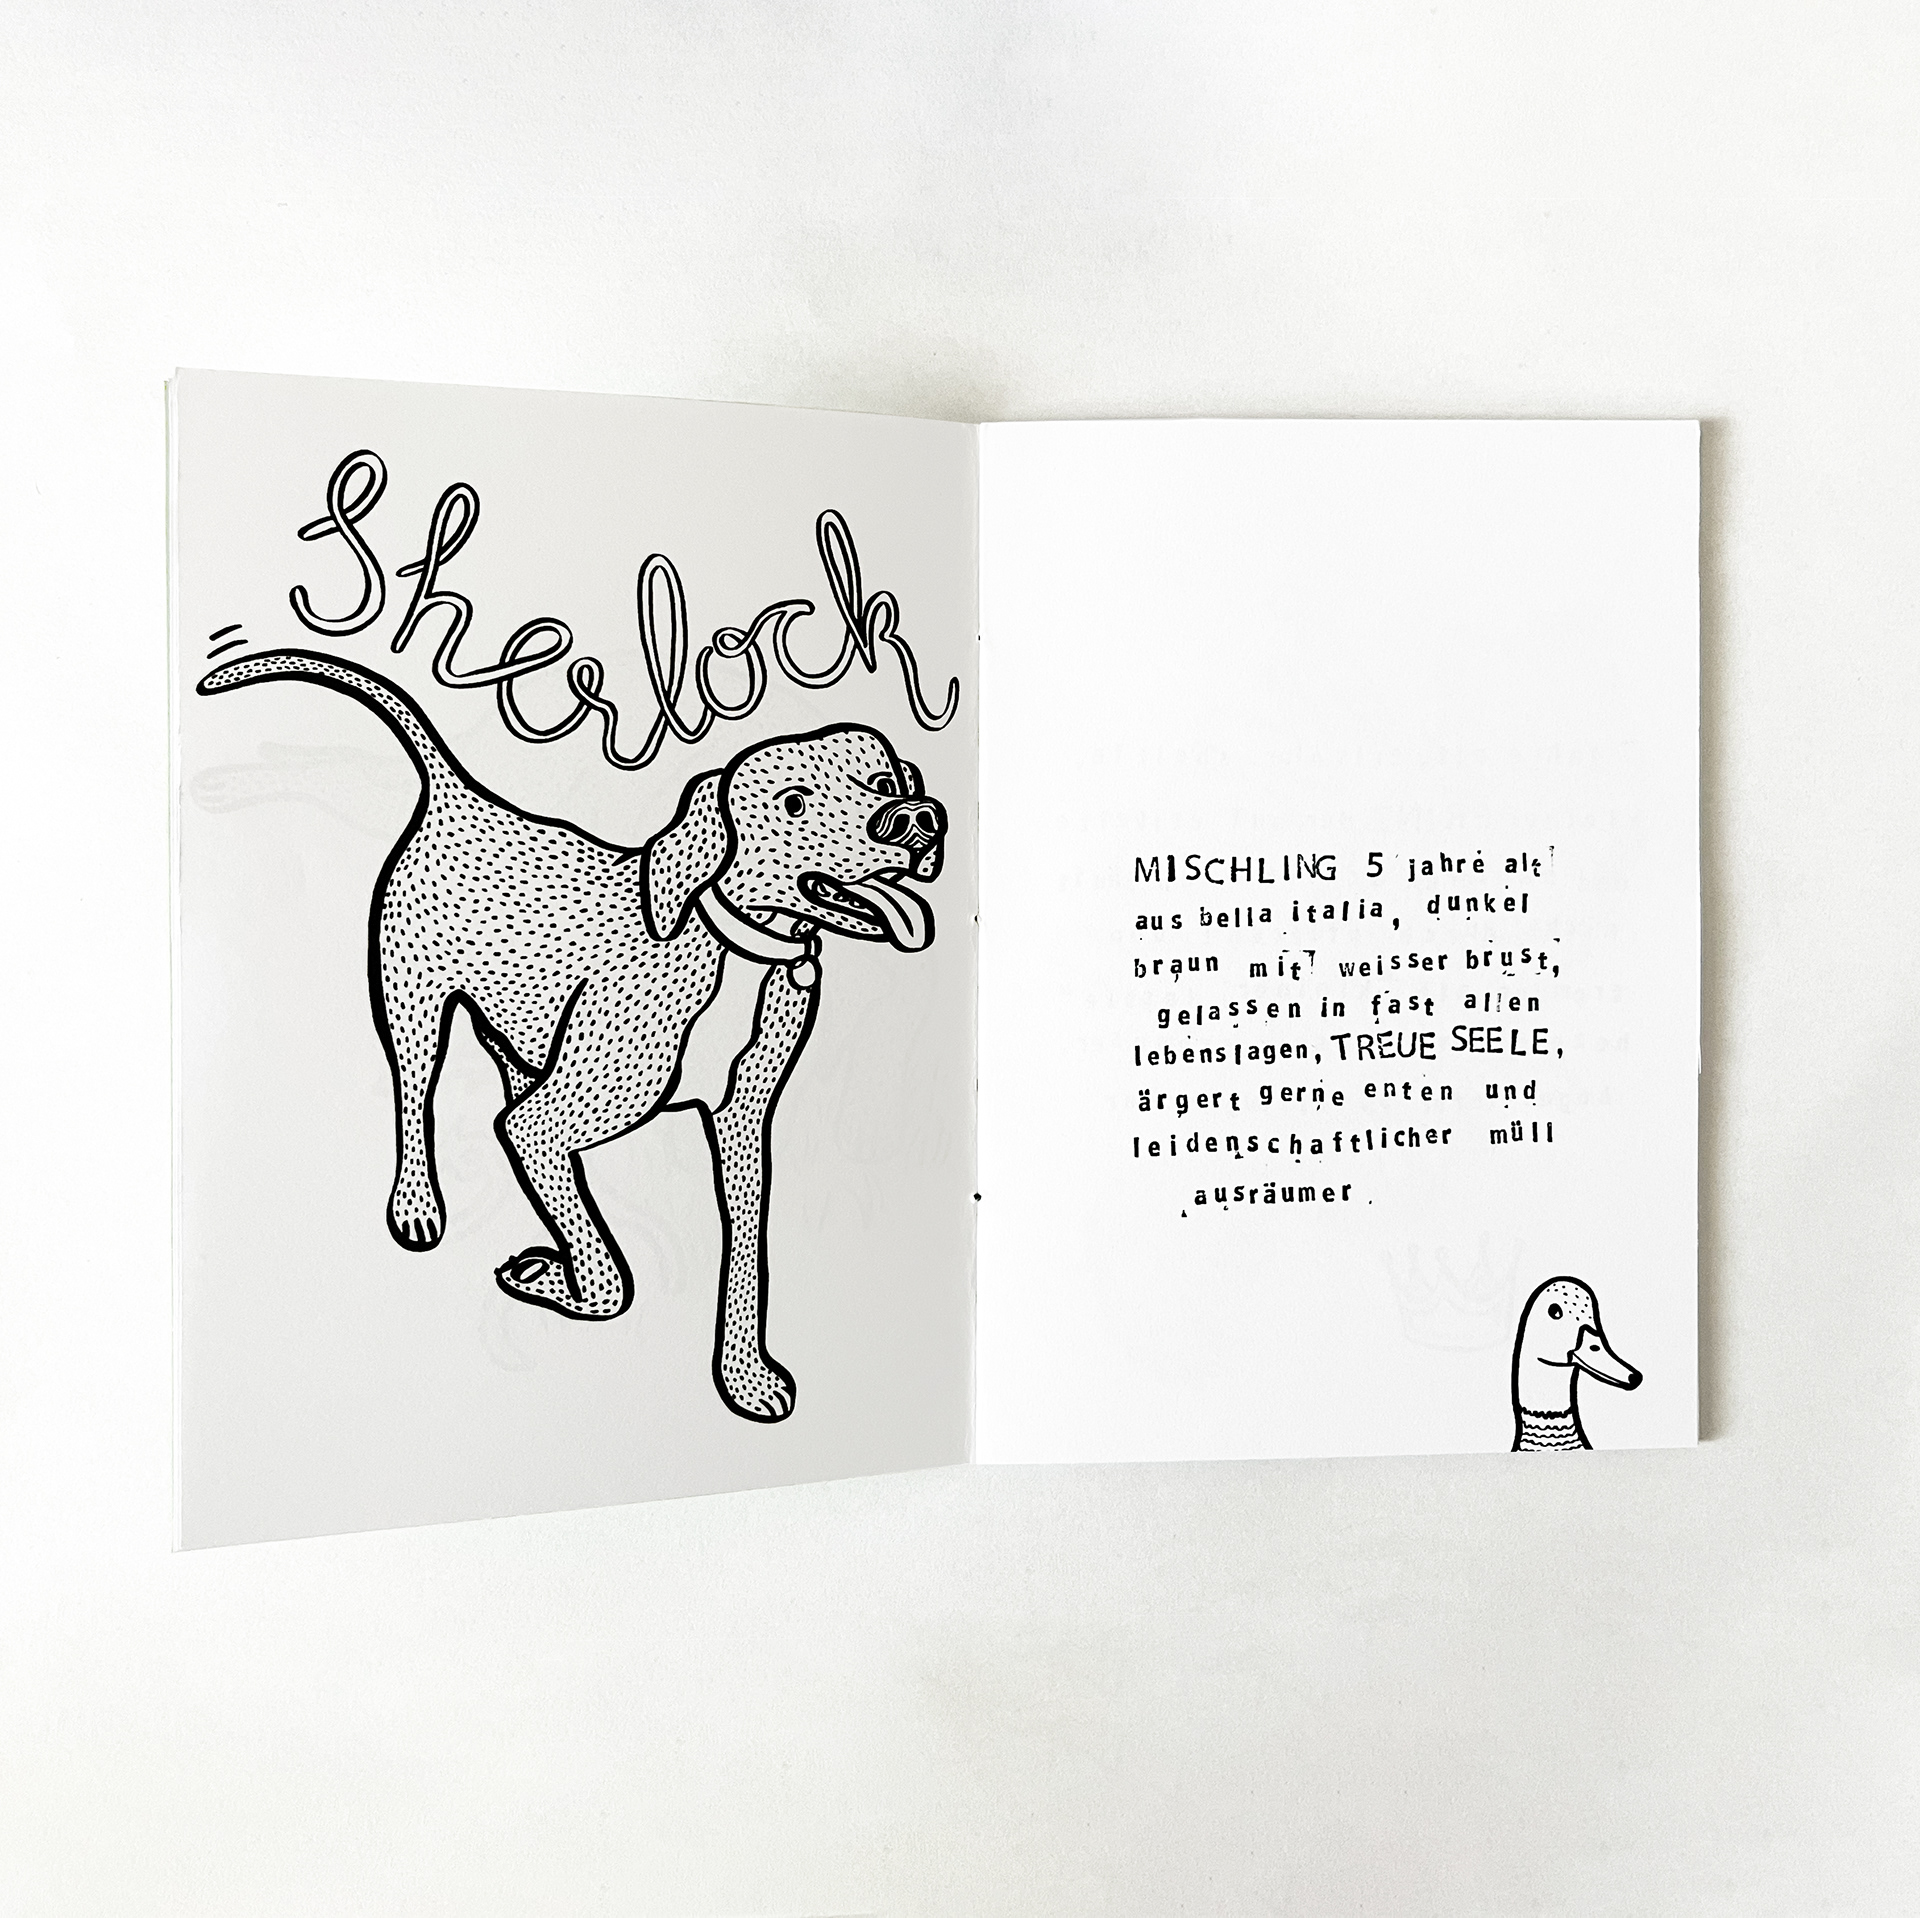 Sherlock
MISCHLING 5 jahre alt
aus bella italia, dunkel
braun mit weisser brust,
gelassen in fast allen
lebenslagen, TREUE SEELE,
ärgert gerne enten und
leidenschaftlicher müll
ausräumer.